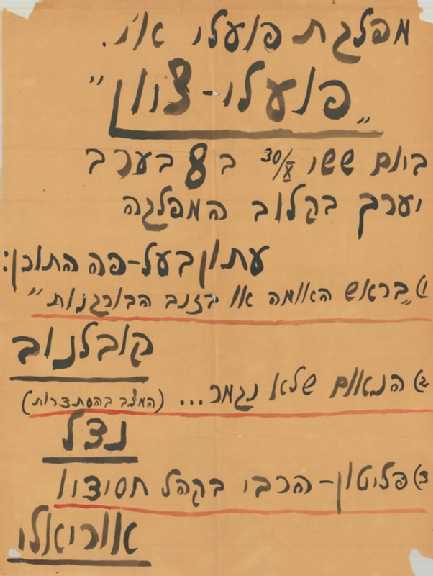 מפלגת פועלי א״י.
„פועלי-צוון"
ביום ששי 30/8 ב 8 בערב
יערך בקלוב המפלגה
עתון בעל-פה התוכן:
1) „בראש האומה או בזנב הבורגנות"
קובלנוב
2) הנאום שלא נגמר... (המצב בהסתדרות)
נצל
3) פליטון-הרבי בקהל חסידיו
אוריאלי